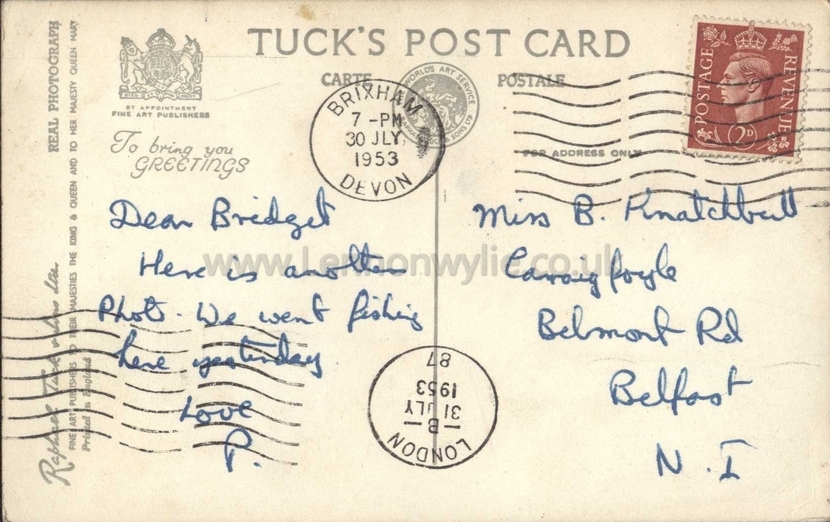 TUCK'S POST CARD
CARTE POSTALE
BY APPOINTMENT
FINE ART PUBLISHERS
WORLD'S ART SERVICE
& SONS LTD
To bring you
GREETINGS
BRIXHAM
7 - PM
30 JLY
1953
DEVON
POSTAGE
REVENUE
2D
FOR ADDRESS ONLY
Dear Bridget
Here is another
Photo. We went fishing
here yesterday
Love
P.
Miss B. Knatchbull
Carraigfoyle
Belmont Rd
Belfast
N. I
LONDON
B
31 JLY
1953
87
REAL PHOTOGRAPH
Raphael Tuck & Sons Ltd
FINE ART PUBLISHERS TO THEIR MAJESTIES THE KING & QUEEN AND TO HER MAJESTY QUEEN MARY
Printed in England
www.Lennonwylie.co.uk